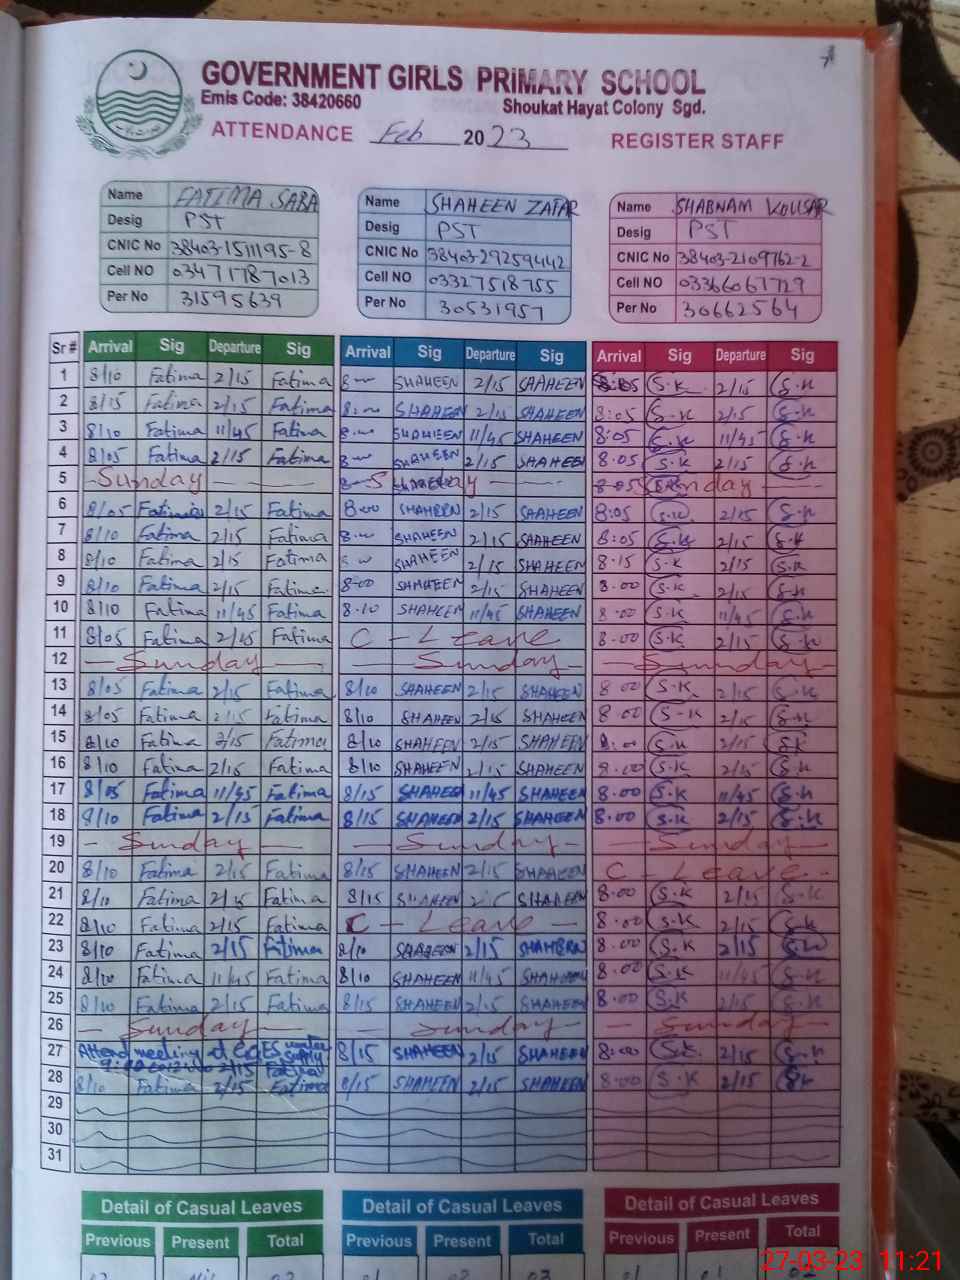 GOVERNMENT GIRLS PRIMARY SCHOOL
Emis Code: 38420660 Shoukat Hayat Colony Sgd.
ATTENDANCE Feb 2023 REGISTER STAFF
Name FATIMA SABA Name SHAHEEN ZAFAR Name SHABNAM KOUSAR
Desig PST Desig PST Desig PST
CNIC No 38403-1511195-8 CNIC No 38403-29259442 CNIC No 38403-2109762-2
Cell NO 03471787013 Cell NO 03327518755 Cell NO 03366061729
Per No 31595639 Per No 30531957 Per No 30662564
Sr # Arrival Sig Departure Sig Arrival Sig Departure Sig Arrival Sig Departure Sig
1 8/10 Fatima 2/15 Fatima SHAHEEN 2/15 SHAHEEN 8:05 S.K 2/15 S.K
2 8/15 Fatima 2/15 Fatima SHAHEEN 2/15 SHAHEEN 8:05 S.K 2/15 S.K
3 8/10 Fatima 11/45 Fatima SHAHEEN 11/45 SHAHEEN 8:05 S.K 11/45 S.K
4 8/05 Fatima 2/15 Fatima SHAHEEN 2/15 SHAHEEN 8.05 S.K 2/15 S.K
5 Sunday
6 8/05 Fatima 2/15 Fatima 8:00 SHAHEEN 2/15 SHAHEEN 8:05 S.K 2/15 S.K
7 8/10 Fatima 2/15 Fatima SHAHEEN 2/15 SHAHEEN 8:05 S.K 2/15 S.K
8 8/10 Fatima 2/15 Fatima SHAHEEN 2/15 SHAHEEN 8.15 S.K 2/15 S.K
9 8/10 Fatima 2/15 Fatima 8-00 SHAHEEN 2/15 SHAHEEN 8.00 S.K 2/15 S.K
10 8/10 Fatima 11/45 Fatima 8.10 SHAHEEN 11/45 SHAHEEN 8.00 S.K 11/45 S.K
11 8/05 Fatima 2/45 Fatima C - Leave 8-00 S.K 2/15 S.K
12 Sunday Sunday Sunday
13 8/05 Fatima 2/15 Fatima 8/10 SHAHEEN 2/15 SHAHEEN 8.00 S.K 2/15 S.K
14 8/05 Fatima 2/15 Fatima 8/10 SHAHEEN 2/15 SHAHEEN 8.00 S-K 2/15 S.K
15 8/10 Fatima 2/15 Fatima 8/10 SHAHEEN 2/15 SHAHEEN 8:00 S.K 2/15 S.K
16 8/10 Fatima 2/15 Fatima 8/10 SHAHEEN 2/15 SHAHEEN 8.00 S.K 2/15 S.K
17 8/05 Fatima 11/45 Fatima 8/15 SHAHEEN 11/45 SHAHEEN 8.00 S.K 11/45 S.K
18 8/10 Fatima 2/15 Fatima 8/15 SHAHEEN 2/15 SHAHEEN 8.00 S.K 2/15 S.K
19 Sunday Sunday Sunday
20 8/10 Fatima 2/15 Fatima 8/15 SHAHEEN 2/15 SHAHEEN C - Leave
21 8/10 Fatima 2/15 Fatima 8/15 SHAHEEN 2/15 SHAHEEN 8.00 S.K 2/15 S.K
22 8/10 Fatima 2/15 Fatima C - Leave 8.00 S.K 2/15 S.K
23 8/10 Fatima 2/15 Fatima 8/10 SHAHEEN 2/15 SHAHEEN 8.00 S.K 2/15 S.K
24 8/10 Fatima 11/45 Fatima 8/10 SHAHEEN 11/45 SHAHEEN 8.00 S.K 11/45 S.K
25 8/10 Fatima 2/15 Fatima 8/15 SHAHEEN 2/15 SHAHEEN 8.00 S.K 2/15 S.K
26 Sunday Sunday Sunday
27 Attend meeting 2/15 Fatima 8/15 SHAHEEN 2/15 SHAHEEN 8:00 S.K 2/15 S.K
28 8/10 Fatima 2/15 Fatima 8/15 SHAHEEN 2/15 SHAHEEN 8.00 S.K 2/15 S.K
29
30
31
Detail of Casual Leaves Detail of Casual Leaves Detail of Casual Leaves
Previous Present Total Previous Present Total Previous Present Total
27-03-23 11:21